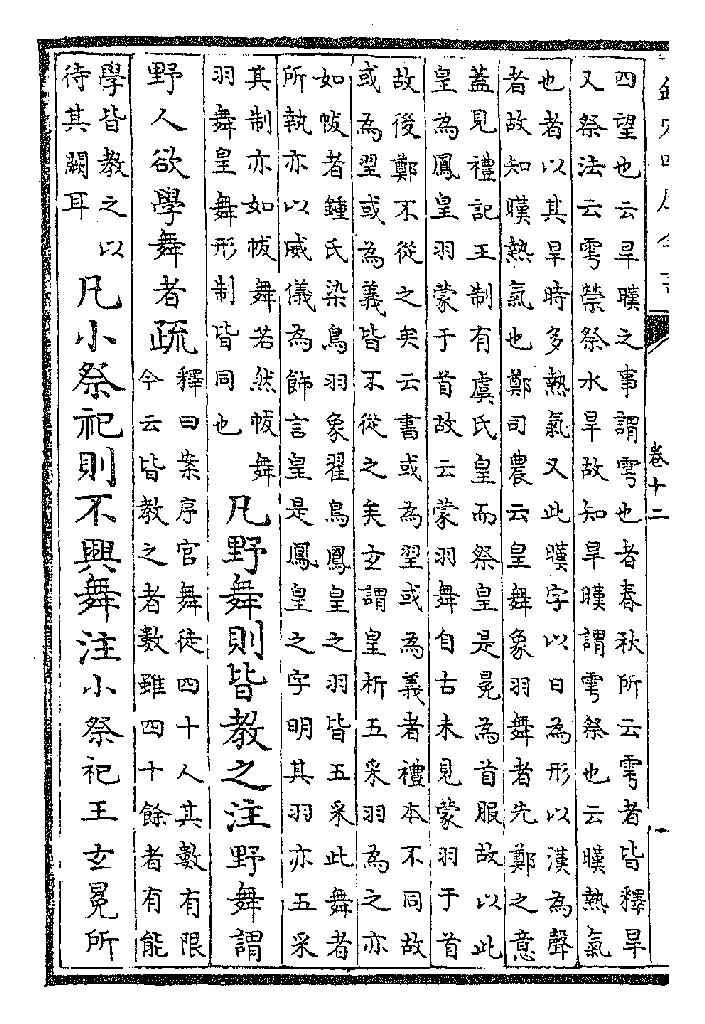 卷十二
四望也云旱暵之事謂雩也者春秋所云雩者皆釋旱
又祭法云雩禜祭水旱故知旱暵謂雩祭也云暵熱氣
也者以其旱時多熱氣又此暵字以日為形以漢為聲
者故知暵熱氣也鄭司農云皇舞象羽舞者先鄭之意
蓋見禮記王制有虞氏皇而祭皇是冕為首服故以此
皇為鳳皇羽蒙于首故云蒙羽舞自古未見蒙羽于首
故後鄭不從之矣云書或為䍿或為義者禮本不同故
或為䍿或為義皆不從之矣玄謂皇析五采羽為之亦
如帗者鍾氏染鳥羽象翟鳥鳳皇之羽皆五采此舞者
所執亦以威儀為飾言皇是鳳皇之字明其羽亦五采
其制亦如帗舞若然帗舞
羽舞皇舞形制皆同也
凡野舞則皆教之注野舞謂
野人欲學舞者疏
釋曰案序官舞徒四十人其數有限
今云皆教之者數雖四十餘者有能
學皆教之以
待其闕耳
凡小祭祀則不興舞注小祭祀王玄冕所